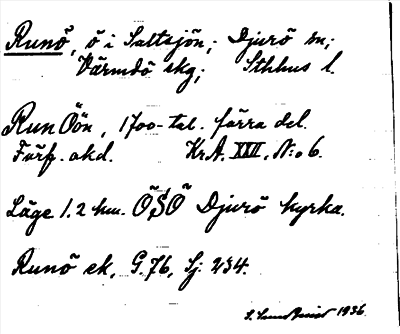 Runö, ö i Saltsjön; Djurö sn;
Värmdö skg; Sthlms l.
Run Öön, 1700-tal. förra del.
Förf. okd. Kr.A. XXII. N:o 6.
Läge 1.2 km. ÖSÖ Djurö kyrka.
Runö ek, G.76, Sj. 234.
S. Lundqvist 1936